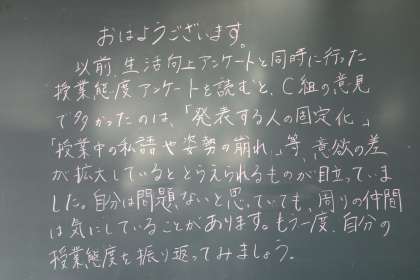 おはようございます。
以前、生活向上アンケートと同時に行った
授業態度アンケートを読むと、C組の意見
で多かったのは、「発表する人の固定化」
「授業中の私語や姿勢の崩れ」等、意欲の差
が拡大しているととらえられるものが目立っていま
した。自分は問題ないと思っていても、周りの仲間
は気にしていることがあります。もう一度、自分の
授業態度を振り返ってみましょう。